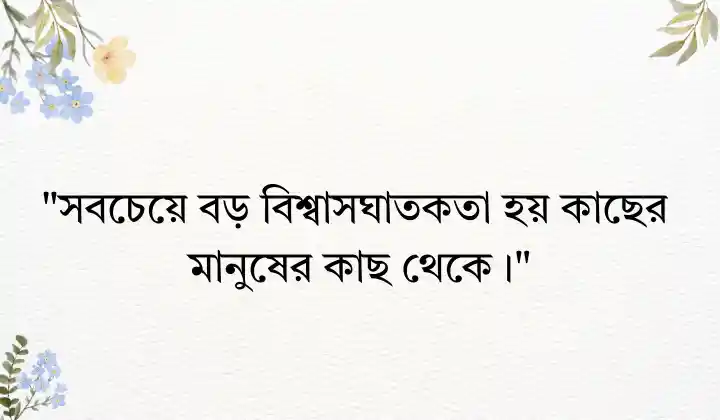 "সবচেয়ে বড় বিশ্বাসঘাতকতা হয় কাছের
মানুষের কাছ থেকে।"